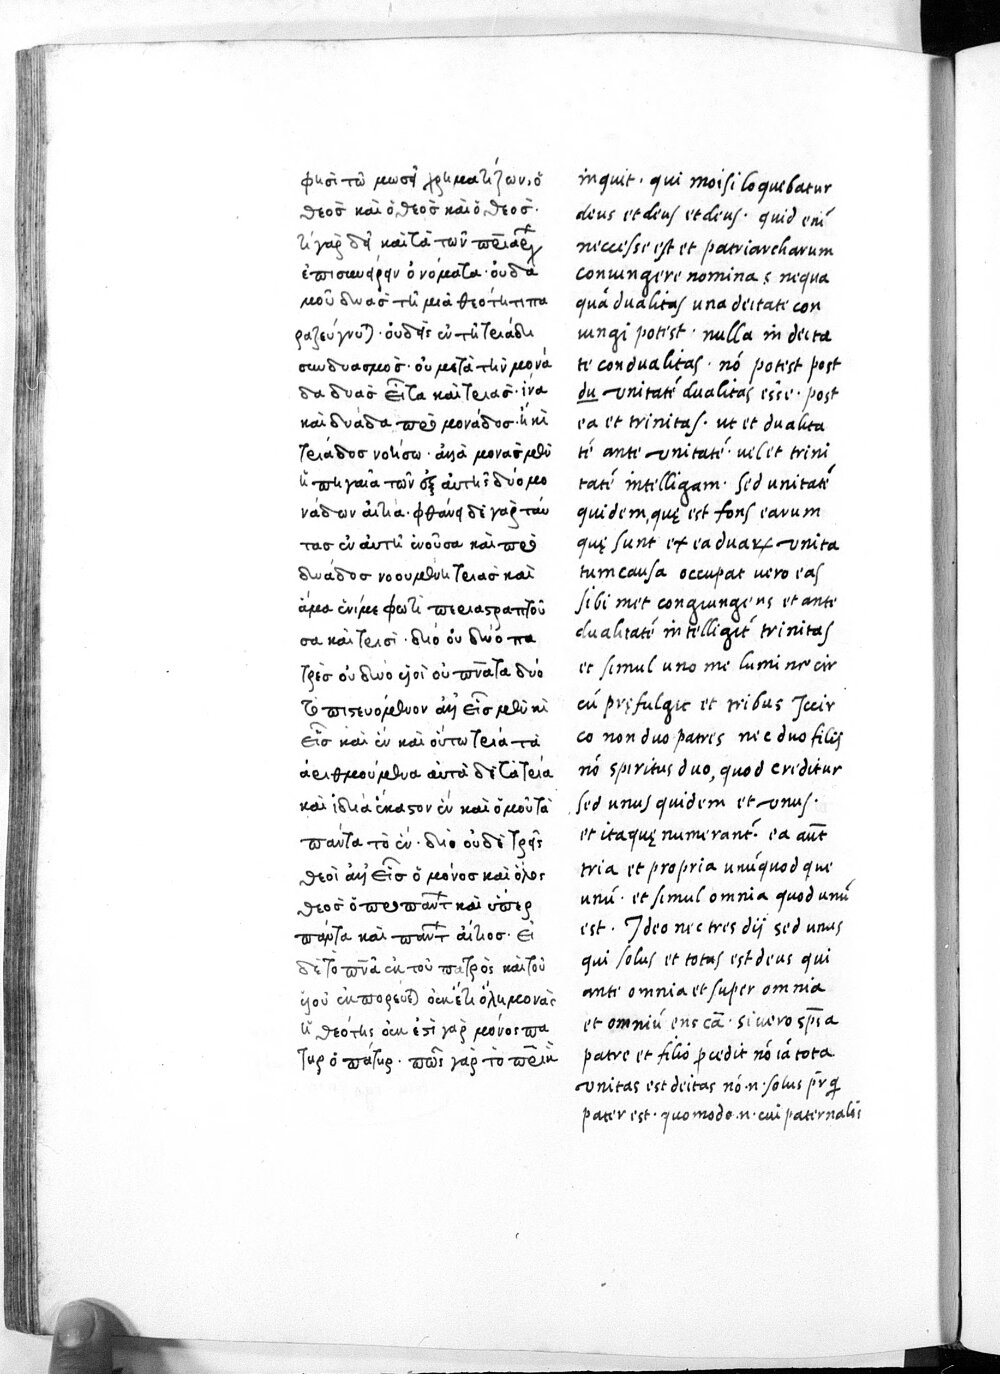 φησὶ τῶ μωσῆ χρηματίζων, ὁ
θεὸσ καὶ ὁ θεὸσ καὶ ὁ θεὸσ.
τί γὰρ δεῖ καὶ τὰ τῶν
ἐπισυνάρειν ὀνόματα. οὐδα
μοῦ δυὰσ τῆ μιᾶ θεότητι πα
ραζεύγνυται. οὐδεὶς ἐν τῆ τριάδι
συνδυασμοσ. οὐ μετὰ τὴν μονά
δα δυὰσ εἶτα καὶ τριασ. ἵνα
καὶ δυάδα πρὸ μονάδοσ. ἢ καὶ
τριάδοσ νοήσω. ἀλλὰ μονασ μὲν
ἡ πηγαία τῶν ἐξ αὐτῆς δύο μο
νάδων αἰτία. φθάνει δὲ γὰρ ταύ
τασ ἐν αὐτῆ ἑνοῦσα καὶ πρὸ
δυάδοσ νοουμένη τριασ καὶ
ἅμα ἑνί με φωτὶ περιαστραπτοῦ
σα καὶ τρισὶ. διὸ οὐ δυὸ πα
τρὲσ οὐ δυὸ υἱοὶ οὐ πν̅ατα δύο
τὸ πιστευόμενον ἀλλ' εἷσ μὲν καὶ
εἷσ καὶ ἓν καὶ οὕτω τρία τὰ
ἀριθμούμενα αὐτὰ δὲ τὰ τρία
καὶ ἰδία ἕκαστον ἓν καὶ ὁμοῦ τὰ
πάντα τὸ ἕν. διὸ οὐδὲ τρεῖς
θεοὶ ἀλλ' εἷσ ὁ μόνοσ καὶ ὅλος
θεοσ ὁ πρὸ πάντων καὶ ὑπὲρ
πάντα καὶ πάντων αἴτιοσ. εἰ
δὲ τὸ πν̅α ἐκ τοῦ πατρὸς καὶ τοῦ
υἱοῦ ἐκπορεύεται οὐκ ἔτι ὅλη μονὰς
ἡ θεότης οὐκ ἔτι γὰρ μόνος πα
τὴρ ὁ πατὴρ. πῶς γὰρ τὸ
inquit. qui moisi loquebatur
deus et deus et deus. quid eni̅
neccesse est et patriarcharum
coniungere nomina, nequa
quā dualitas una deitate con
iungi potest. nulla in deita
te condualitas. nō potest post
du unitatē dualitas esse. post
ea et trinitas. ut et dualita
tē ante unitatē. uel et trini
tatē intelligam. sed unitatē
quidem, quę est fons earum
quę sunt ex ea duarum unita
tum causa occupat uero eas
sibi met congiungens et ante
dualitatē intelligit̄ trinitas
et simul uno me lumine cir
cū pręfulgit et tribus Iccir
co non duo patres nec duo filij
nō spiritus duo, quod creditur
sed unus quidem et unus.
et itaquę numerant̄. ea aūt
tria et propria unūquodque
unū. et simul omnia quod unū
est. Ideo nec tres dij sed unus
qui solus et totas est deus qui
ante omnia et super omnia
et omniū ens cā. si uero sp̄s a
patre et filio p̄cedit nō iā tota
unitas est deitas nō.n. solus
pater est. quomodo.n. cui paternalis